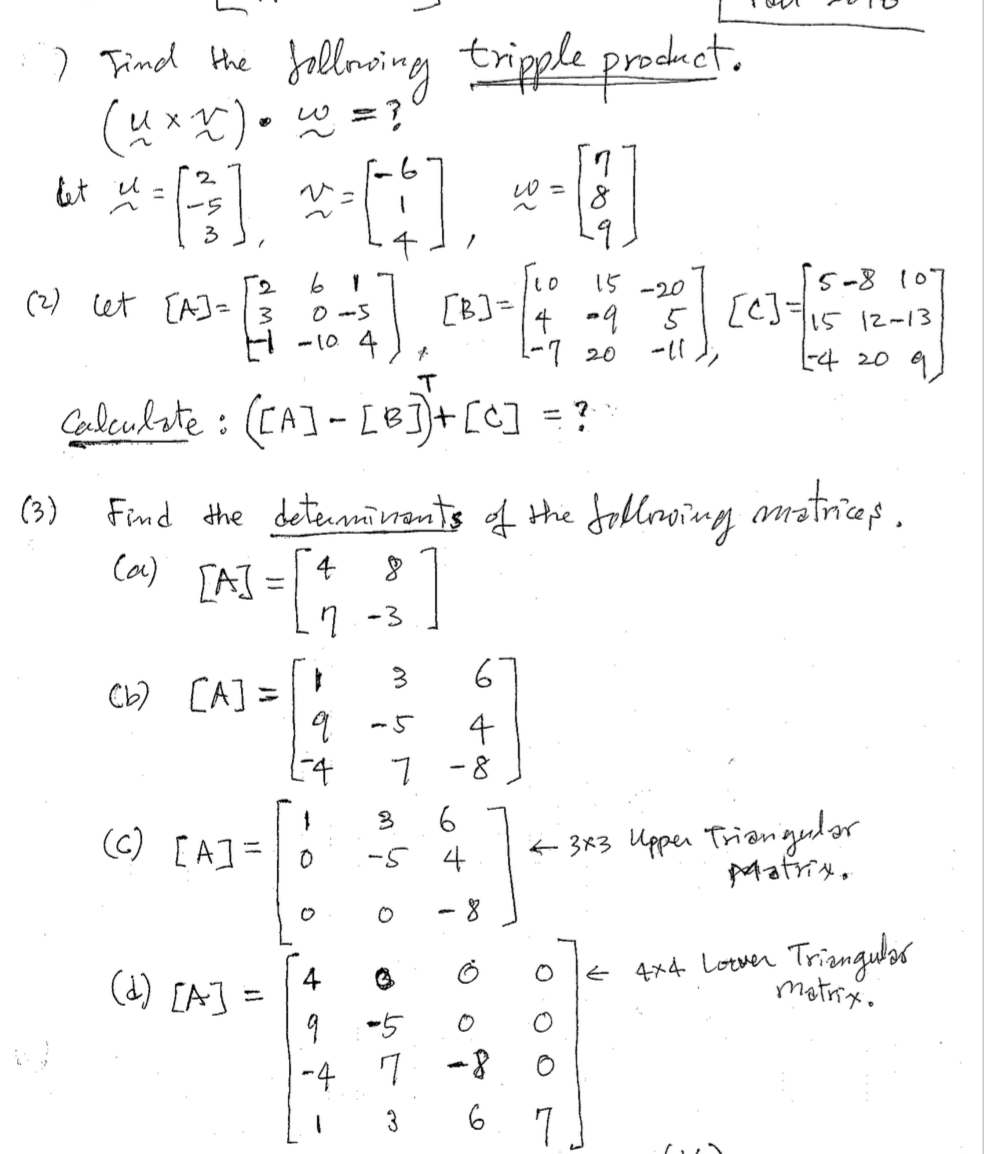 ) Find the following tripple product.
(u × v) • w = ?
let u = [2 -5 3], v = [-6 1 4], w = [7 8 9]
(2) let [A] = [2 6 1; 3 0 -5; -1 -10 4], [B] = [10 15 -20; 4 -9 5; -7 20 -11], [C] = [5 -8 10; 15 12 -13; -4 20 9]
Calculate : ([A] - [B])ᵀ + [C] = ?
(3) Find the determinants of the following matrices.
(a) [A] = [4 8; 7 -3]
(b) [A] = [1 3 6; 9 -5 4; -4 7 -8]
(c) [A] = [1 3 6; 0 -5 4; 0 0 -8] ← 3×3 Upper Triangular Matrix.
(d) [A] = [4 0 0 0; 9 -5 0 0; -4 7 -8 0; 1 3 6 7] ← 4×4 Lower Triangular matrix.